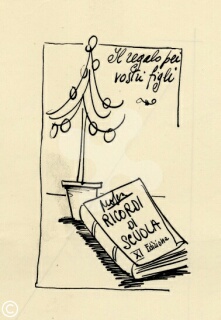 Il regalo pei
vostri figli
RICORDI
DI
SCUOLA
XI Edizione
©